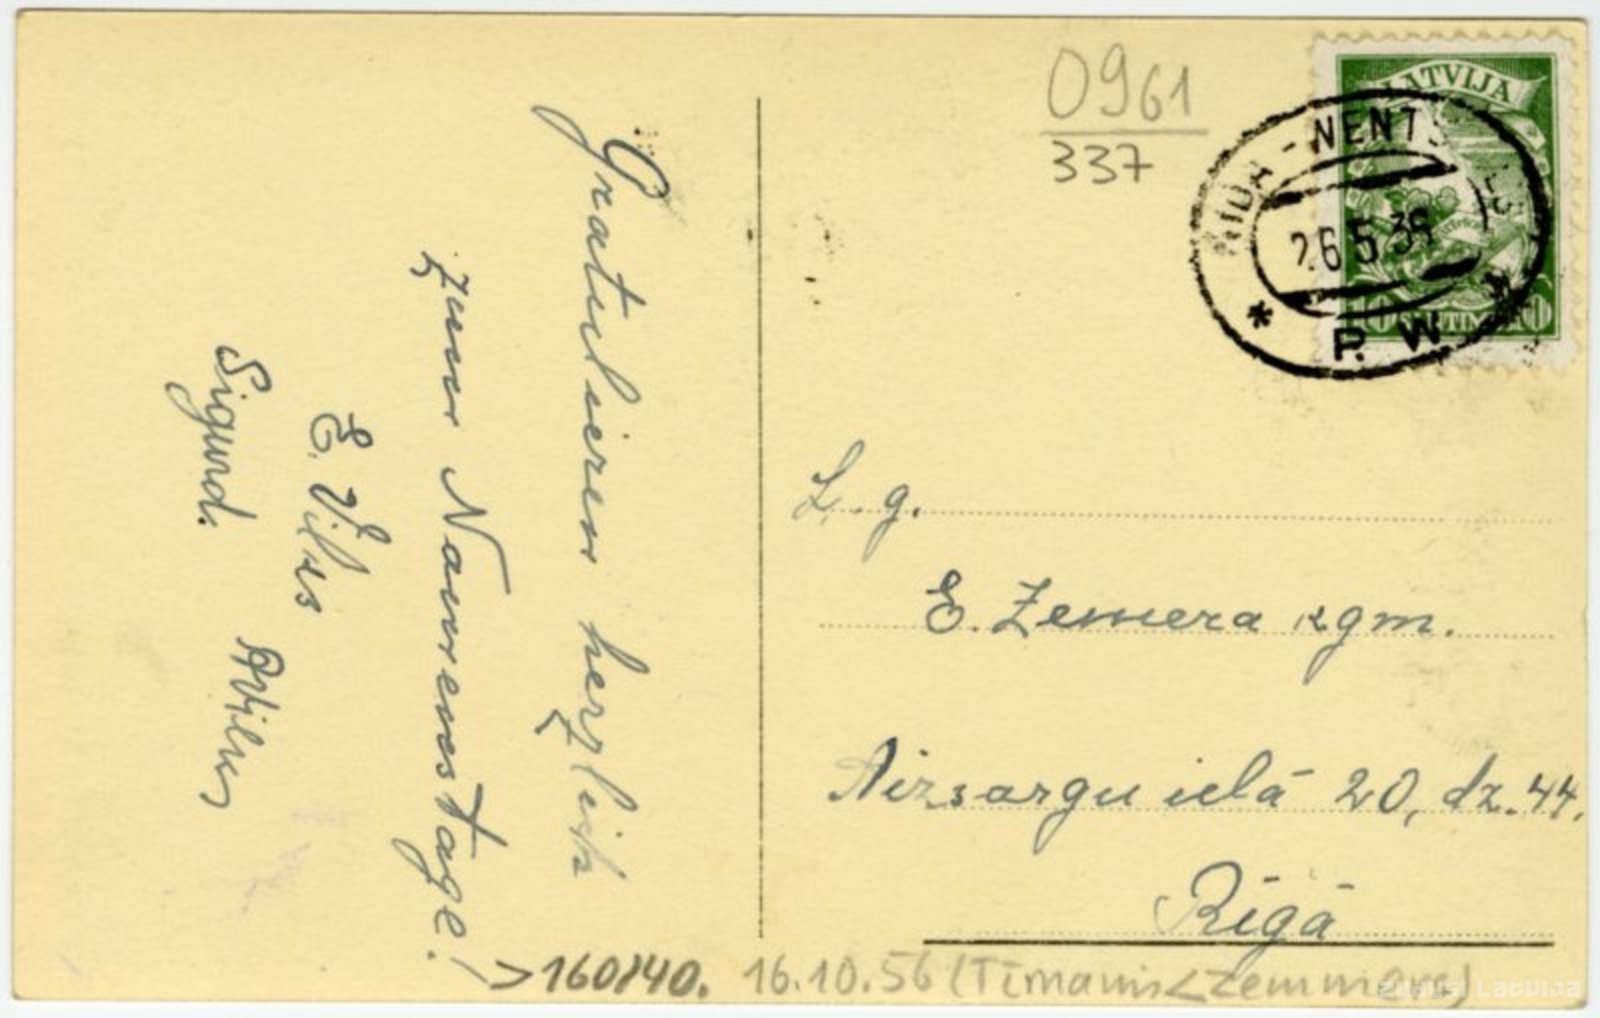 0961
337
LATVIJA
10 SANTIMU 10
- NENTS
26 5 36
P. W.
Gratulieren herzlich
zum Namenstage!
E. Vilks
Sigurd.
L. g.
E. Zemera kgm.
Aizsargu ielā 20, dz. 44.
Rīgā
16.10.56 (Tīmanis < Zemmers)
Zudusi Latvija